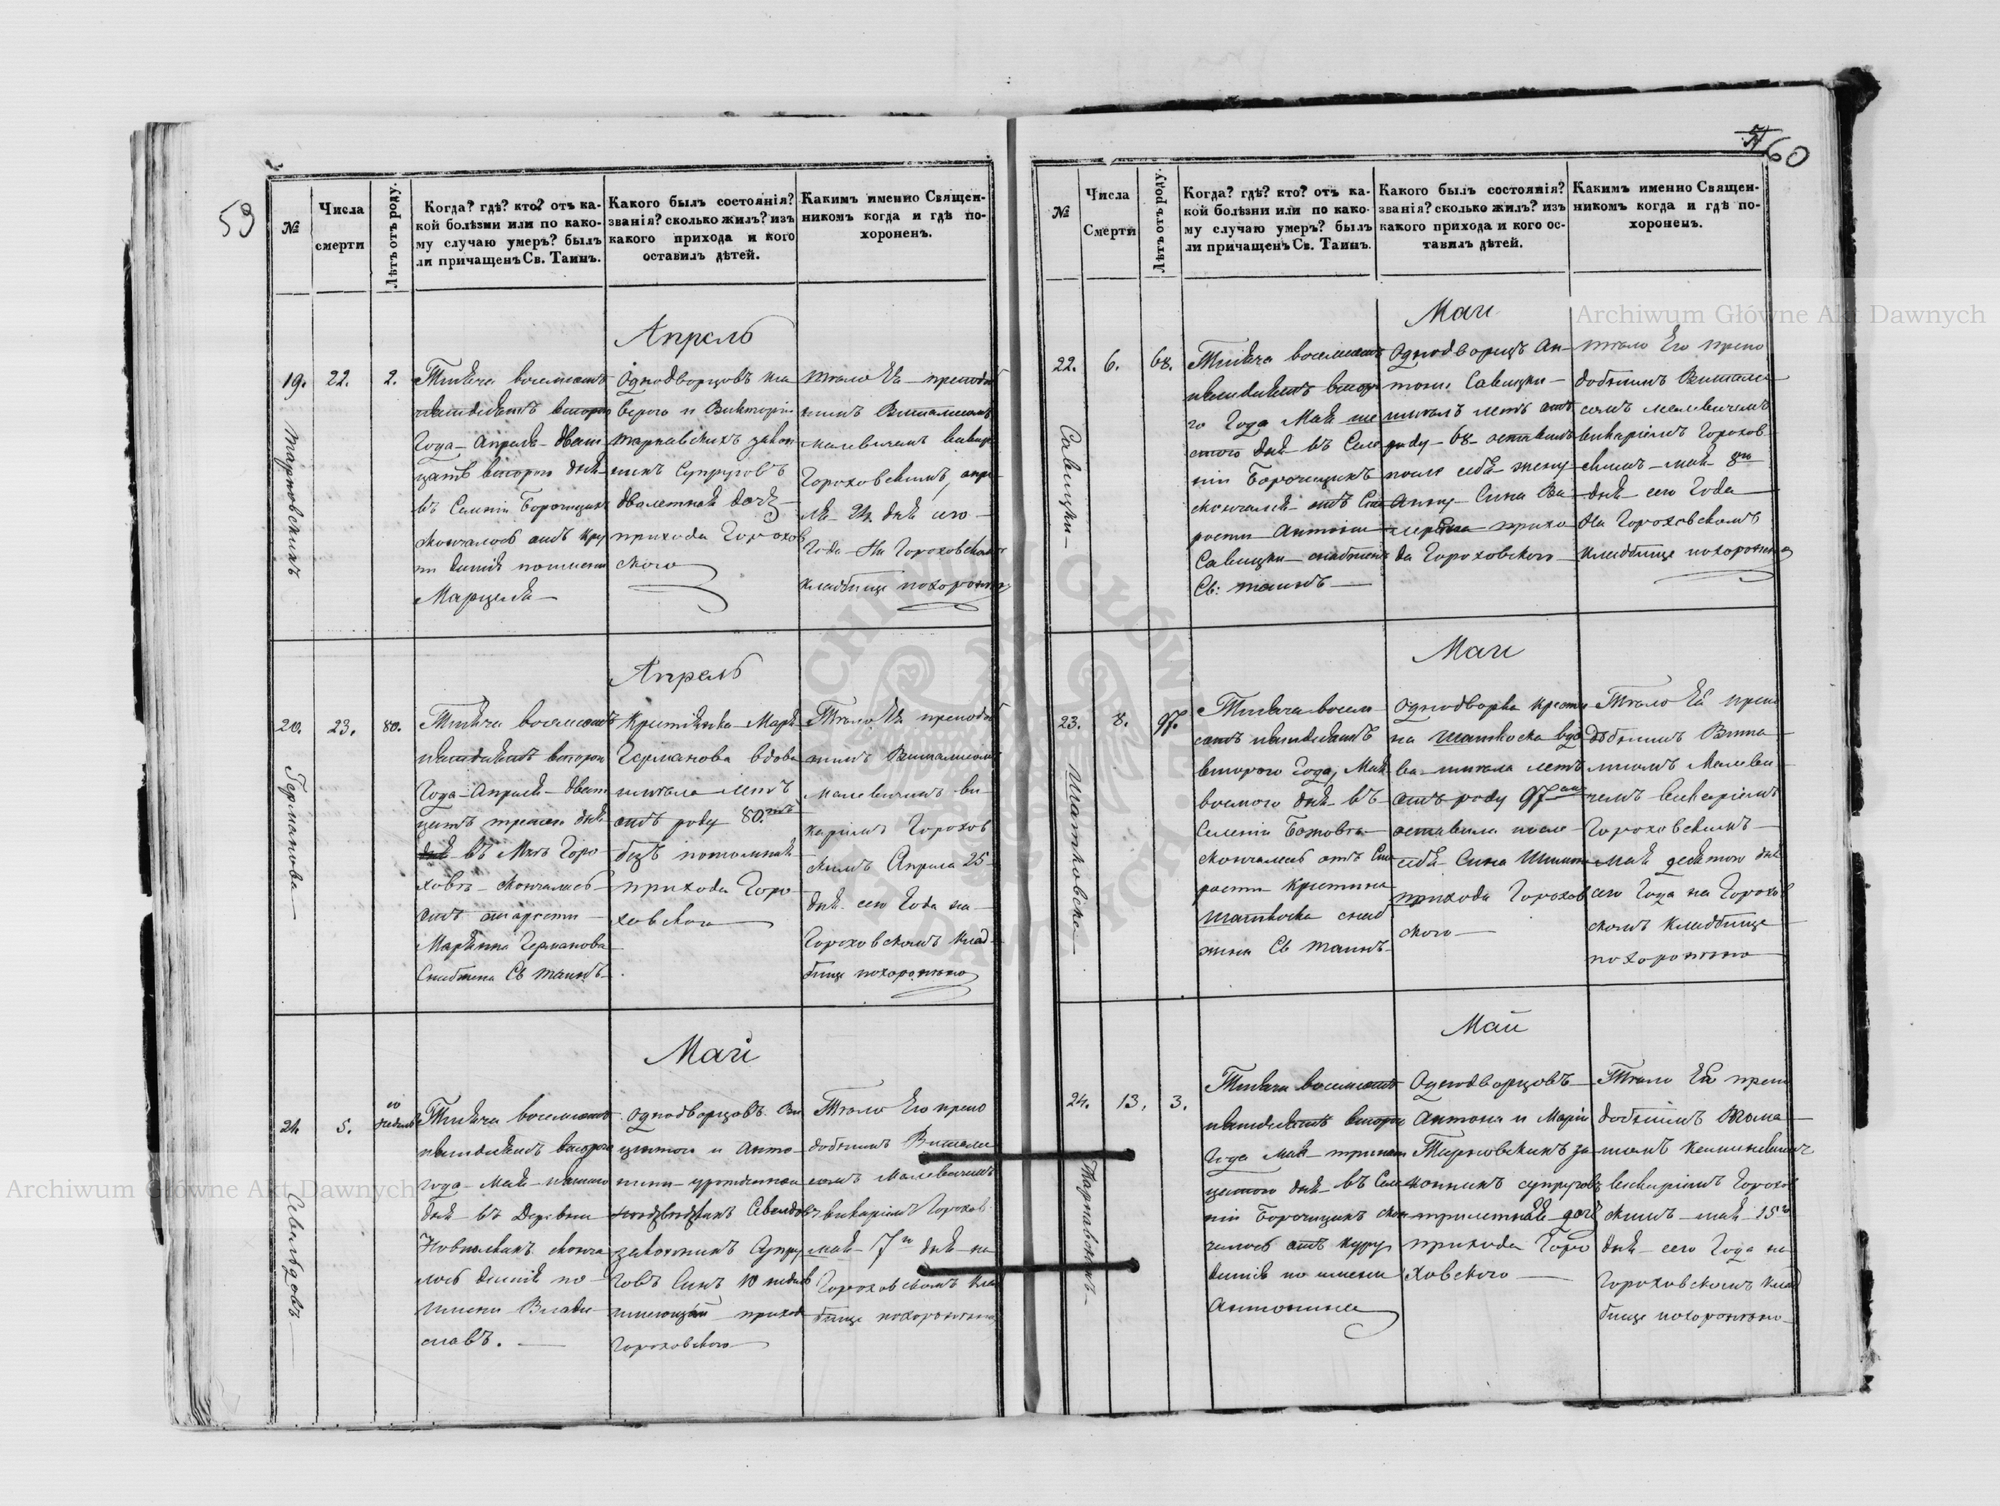 59
№
Числа
смерти
Лѣтъ отъ роду.
Когда? гдѣ? кто? отъ ка-
кой болѣзни или по како-
му случаю умеръ? былъ
ли причащенъ Св. Таинъ.
Какого былъ состоянія?
званія? сколько жилъ? изъ
какого прихода и кого
оставилъ дѣтей.
Какимъ именно Священ-
никомъ когда и гдѣ по-
хороненъ.
Апрель
19.
Тарновскихъ
22.
2.
Тысяча восемсотъ
пятдесятъ второго
Года Апреля двад
цать второго дня
въ Селеніи Борочицахъ
скончалось отъ кру
па дитя по имени
Марцеля
Однодворцовъ
и Викторіи
Тарнавскихъ закон
ныхъ Супруговъ
двалетная дочь
прихода Горохов
ского
тело Ея преподоб
нымъ Виталисомъ
Малевичемъ викар
Гороховскимъ, апре
ля 24. дня сего
Года На Гороховскомъ
кладбище похоронено
Апрель
20.
Германова
23.
80.
Тысяча восемсотъ
пятдесятъ второго
Года Апреля двад
цать третьего дня
въ Мес Горо
ховъ скончалась
отъ старости
Маріянна Германова
Снабжена Св таинъ
Крестьянка Марія
Германова вдова
имела летъ
отъ роду 80.тъ
безъ
прихода Горо
ховского
Тело Ея преподоб
нымъ Виталисомъ
Малевичемъ ви
каріемъ Горохов
скимъ Апреля 25
дня сего Года на
Гороховскомъ клад
бище похоронено
Май
21.
Севельдовъ
5.
10
недель
Тысяча восемсотъ
пятдесятъ второго
года мая пятого
дня въ Деревни
сконча
лось дитя по
имени Влади
славъ.
Однодворцовъ Ви
и Анто
нины урожденной
Севельдовъ
законныхъ Супру
говъ Сынъ 10 недель
имеющій приход
Гороховского
Тело Его препо
добнымъ Витали
сомъ Малевичемъ
викаріемъ Горохов
мая 7го дня на
Гороховскомъ клад
бище похоронено
60
№
Числа
Смерти
Лѣтъ отъ роду.
Когда? гдѣ? кто? отъ ка-
кой болѣзни или по како-
му случаю умеръ? былъ
ли причащенъ Св. Таинъ.
Какого былъ состоянія?
званія? сколько жилъ? изъ
какого прихода и кого ос-
тавилъ дѣтей.
Какимъ именно Священ-
никомъ когда и гдѣ по-
хороненъ.
Май
22.
Савицки
6.
68.
Тысяча восемсотъ
пятдесятъ второ
го Года Мая ше
стого дня въ Селе
ніи Борочицахъ
скончался отъ Ста
рости Антоній
Савицки снабженъ
Св: таинъ
Однодворецъ Ан
тоні Савицки
имелъ летъ отъ
роду 68 оставилъ
после себя жену
Анну Сына Ва
лер прихо
да Гороховского
тело Его препо
добнымъ Витали
сомъ Малевичемъ
викаріемъ Горохов
скимъ мая 8го
дня сего Года
На Гороховскомъ
кладбище похоронено
Май
23.
Шатковска
8.
97.
Тысяча восем
сотъ пятдесятъ
второго Года, Мая
восмого дня въ
Селеніи
скончалась отъ Ста
рости Кристина
Шатковска снаб
жена Св таинъ
Однодворка Кристи
на Шатковска вдо
ва имела летъ
отъ роду 97
оставила после
себя Сына
прихода Горохов
ского
Тело Ея препо
добнымъ Вита
лисомъ Малеви
чемъ викаріемъ
Гороховскимъ
мая десятого дня
сего Года на Горохов
скомъ кладбище
похоронено
Май
24.
Тарнавскихъ
13.
3.
Тысяча восемсотъ
пятдесятъ второго
Года Мая тринад
цатого дня въ Селе
ніи Борочицахъ скон
чалось отъ
дитя по имени
Антонина
Однодворцовъ
Антона и Маріи
Тарновскихъ за
конныхъ супруговъ
трилетняя дочь
прихода Горо
ховского
Тело Ея препо
добнымъ Вита
лисомъ
викаріемъ Горохов
скимъ мая 15го
дня сего Года на
Гороховскомъ клад
бище похоронено
Archiwum Główne Akt Dawnych
Archiwum Główne Akt Dawnych